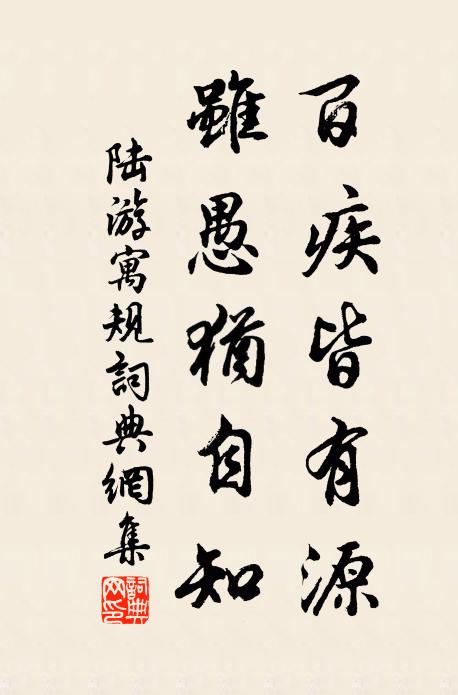 百疾皆有源
雖愚猶自知
陸游寓規詞典網集
詞典網印